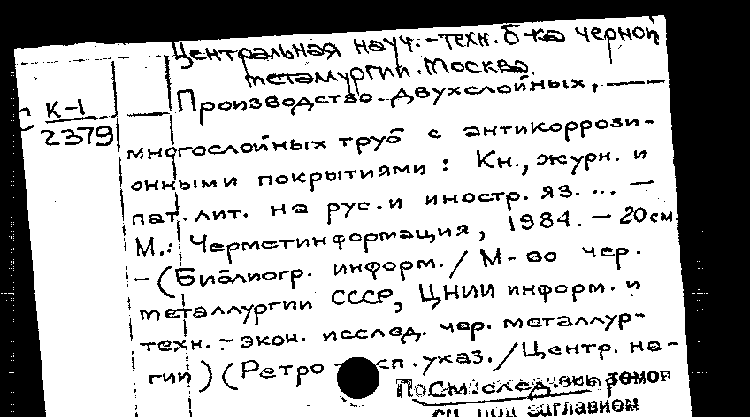 Центральная науч.-техн. б-ка черной
металлургии. Москва.
К-1
2379
Производство двухслойных,
многослойных труб с антикоррози-
онными покрытиями : Кн., журн. и
пат. лит. на рус. и иностр. яз. ... —
М.: Черметинформация, 1984. — 20 см.
– (Библиогр. информ. / М-во чер.
металлургии СССР, ЦНИИ информ. и
техн.-экон. исслед. чер. металлур-
гии) (Ретро сп. указ. / Центр. на-
томов
под заглавием